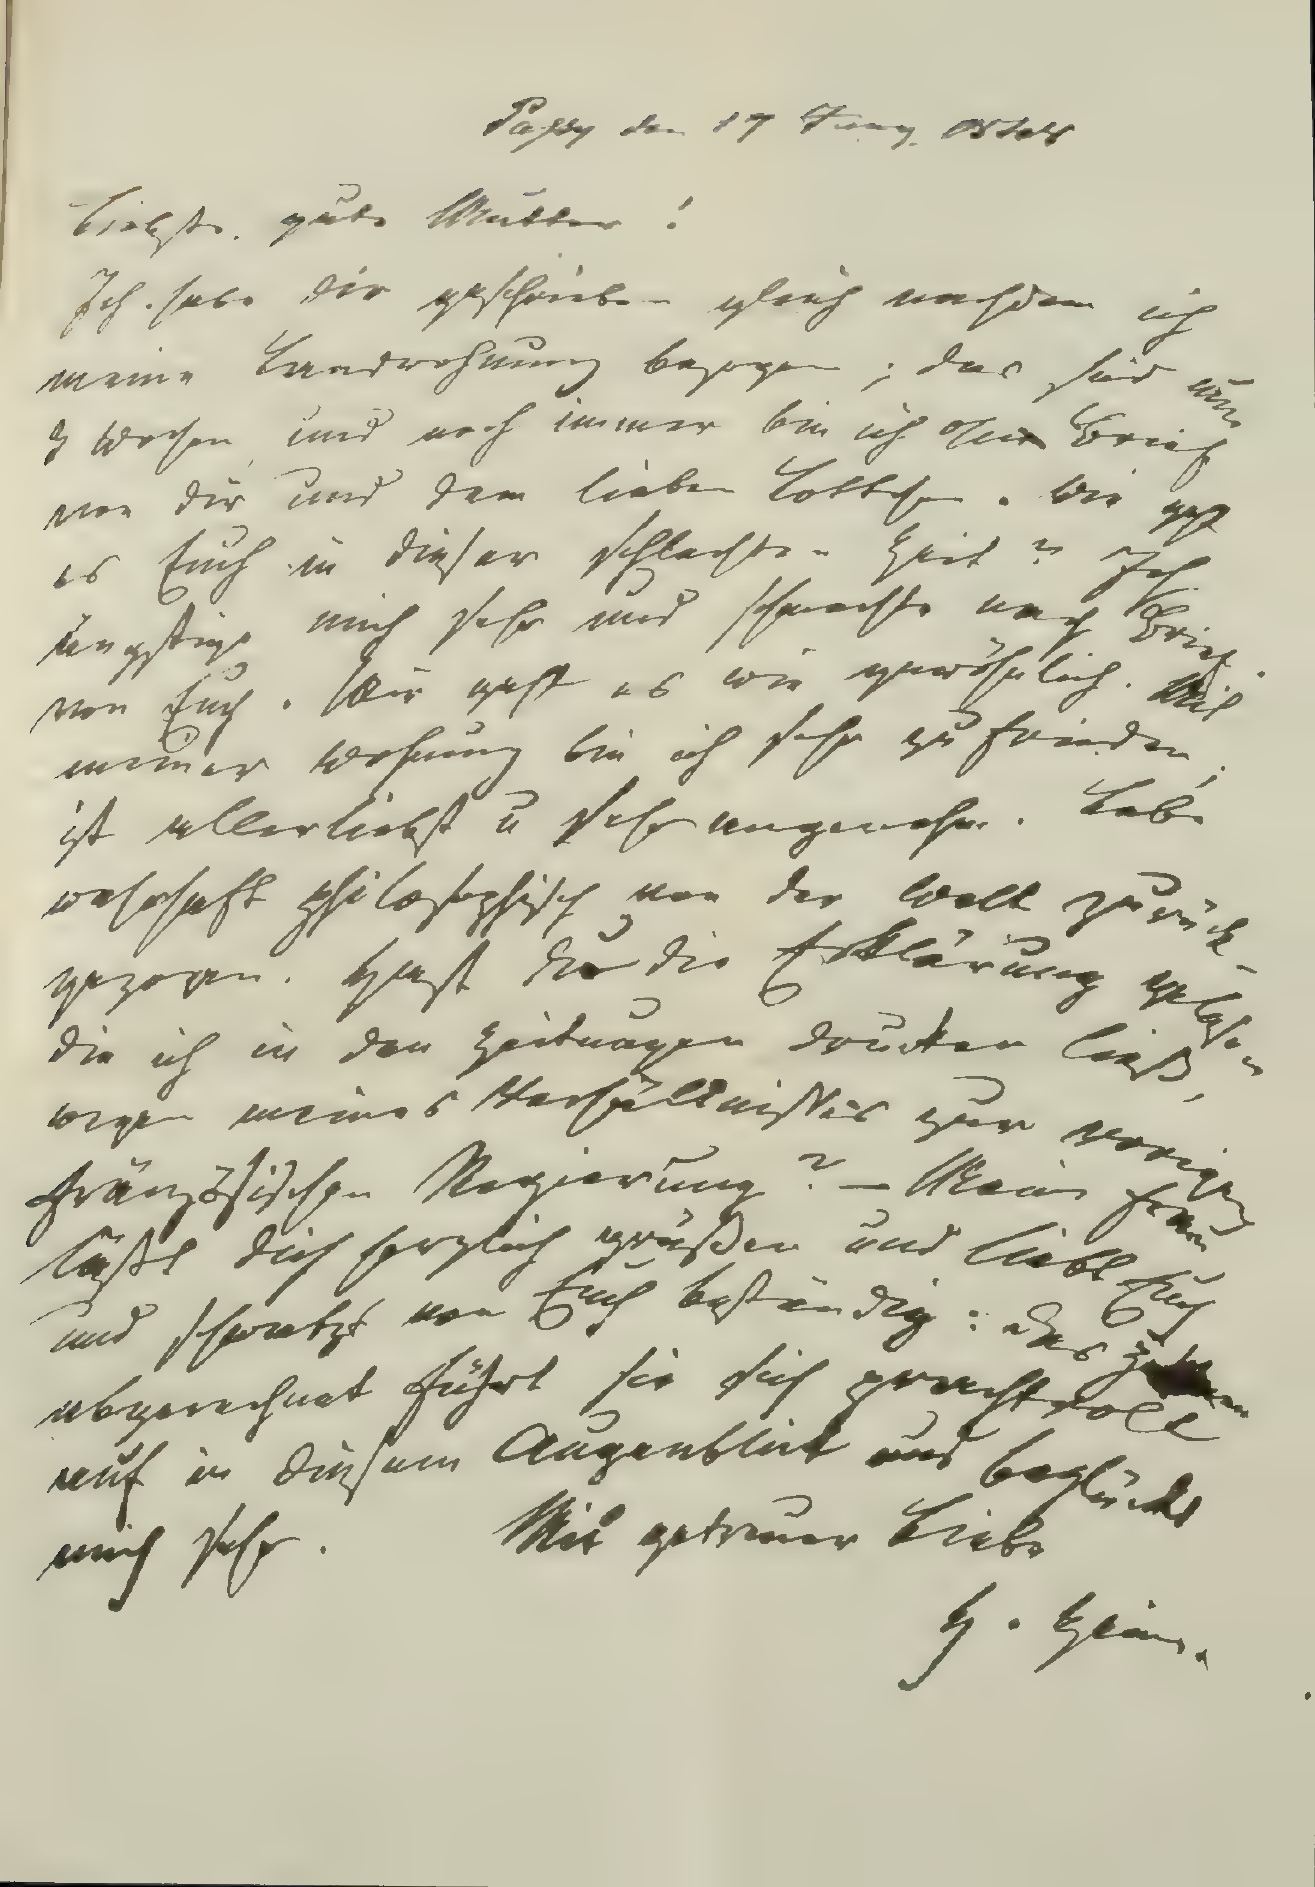 Passy den 17 Juny 1848
Liebste, gute Mutter!
Ich habe dir geschrieben gleich nachdem ich
meine Landwohnung bezogen; das sind nun
3 Wochen und noch immer bin ich ohne Brief
von dir und dem lieben Lottchen. Wie geht
es Euch in dieser schlechten Zeit? Ich
ängstige mich sehr und schmachte nach Brief
von Euch. Mir geht es wie gewöhnlich. Mit
meiner Wohnung bin ich sehr zufrieden,
ist allerliebst u sehr angenehm. Lebe
wahrhaft philosophisch von der Welt zurück-
gezogen. Hast Du die Erklärung gelesen
die ich in den Zeitungen drucken ließ,
wegen meines Verhältnisses zur vorigen
französischen Regierung? — Meine Frau
läßt dich herzlich grüßen und liebt Euch
und schwatzt von Euch beständig: das
abgerechnet führt sie sich prachtvoll
auf in diesem Augenblick und beglückt
mich sehr. Mit getreuer Liebe
H. Heine.